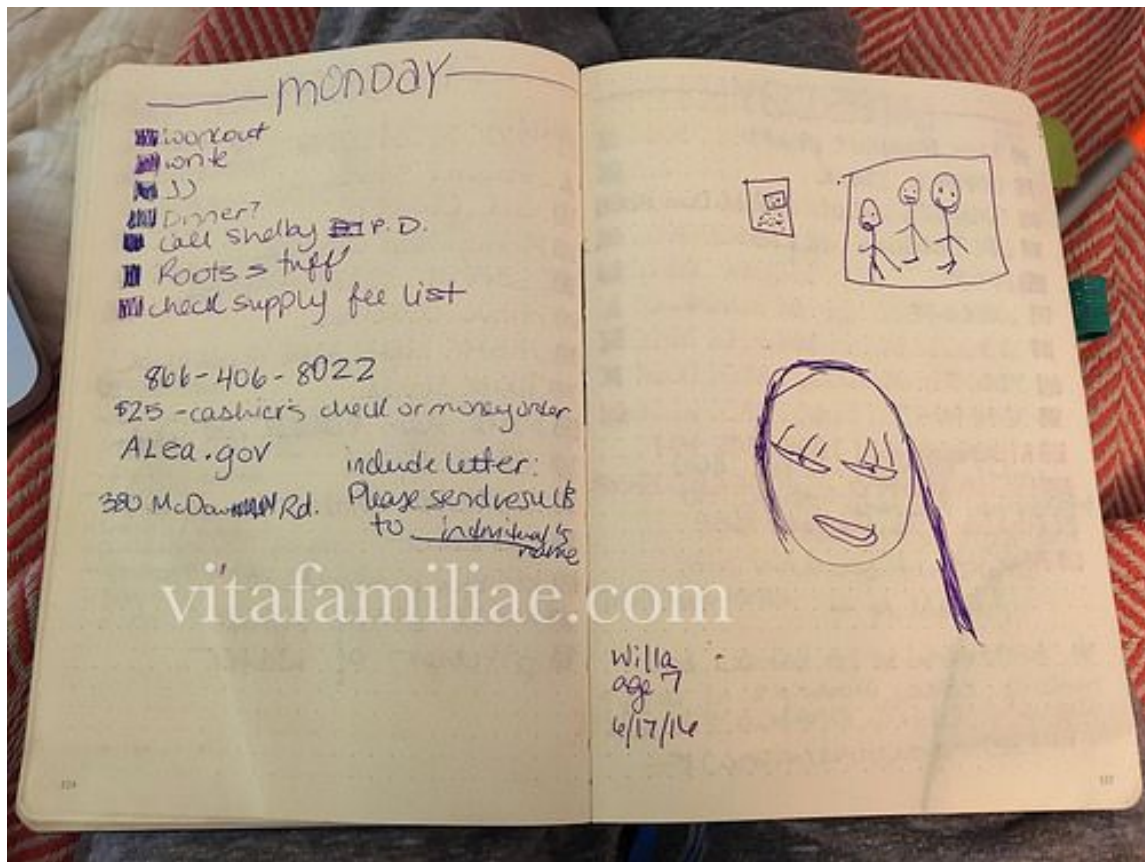 monday
workout
write
JJ
Dinner?
call shelby P.D.
Roots stuff
check supply fee list
866-406-8022
$25 - cashier's check or money order
ALea.gov
include letter:
380 McDow Rd.
Please send results
to individual's
name
vitafamiliae.com
Willa
age 7
6/17/16